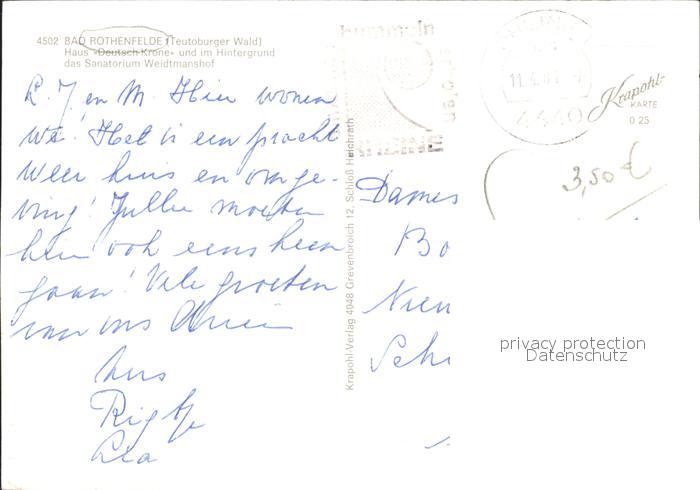 4502 BAD ROTHENFELDE (Teutoburger Wald)
Haus »Deutsch-Krone« und im Hintergrund
das Sanatorium Weidtmanshof
L. J en M. Hier wonen
we! Het is een pracht
Weer huis en omge-
ving! Jullie moeten
hier ook eens heen
gaan! Vele groeten
van ons
Rigtje
Lia
bummeln
RHEINE
11.4.
4440
Krapohl-
KARTE
0 25
3,50 €
Krapohl-Verlag 4048 Grevenbroich 12, Schloß Hülchrath
Dames
Bo
Nien
Sch
privacy protection
Datenschutz